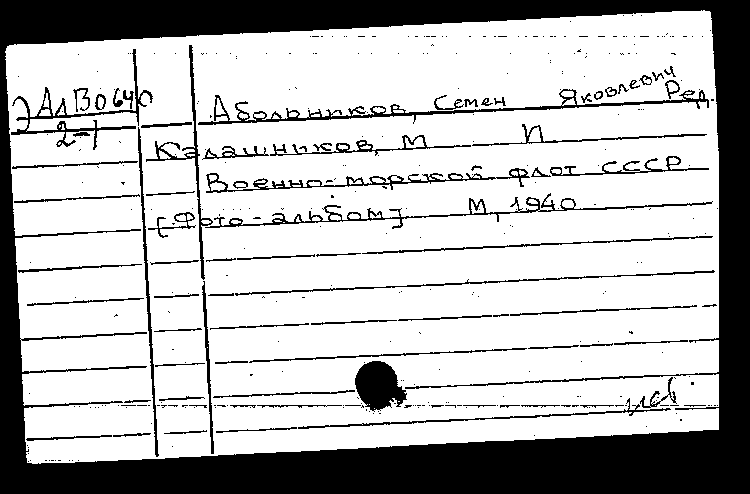 Э АлВ0640
2-1
Абольников, Семен Яковлевич Ред.
Калашников, М И
Военно-морской флот СССР
[Фото-альбом] М, 1940